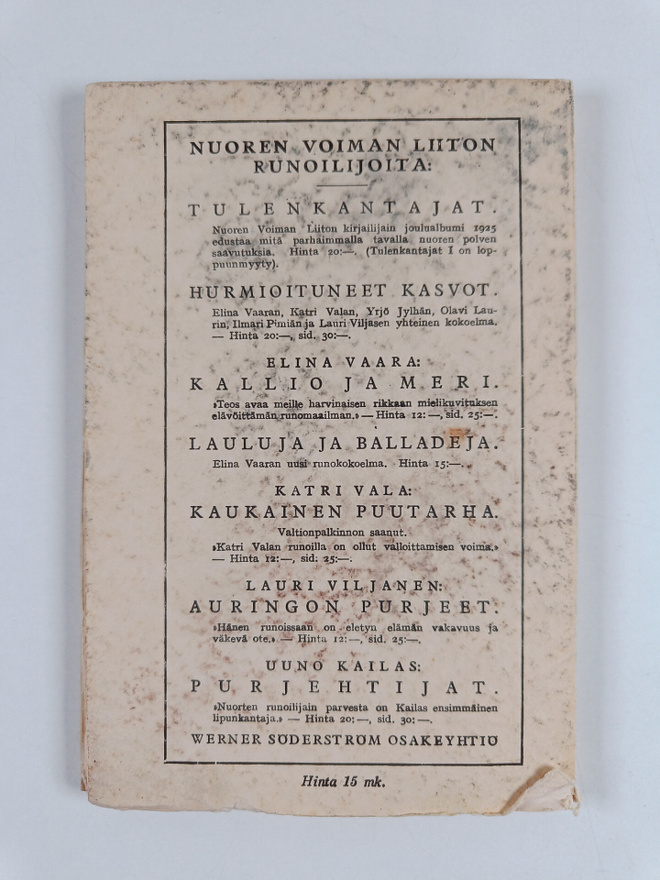 NUOREN VOIMAN LIITON
RUNOILIJOITA:
TULENKANTAJAT.
Nuoren Voiman Liiton kirjailijain joulualbumi 1925
edustaa mitä parhaimmalla tavalla nuoren polven
saavutuksia. Hinta 20:—. (Tulenkantajat I on lop-
puunmyyty).
HURMIOITUNEET KASVOT.
Elina Vaaran, Katri Valan, Yrjö Jylhän, Olavi Lau-
rin, Ilmari Pimiän ja Lauri Viljasen yhteinen kokoelma.
— Hinta 20:—, sid. 30:—.
ELINA VAARA:
KALLIO JA MERI.
»Teos avaa meille harvinaisen rikkaan mielikuvituksen
elävöittämän runomaailman.» — Hinta 12:—, sid. 25:—.
LAULUJA JA BALLADEJA.
Elina Vaaran uusi runokokoelma. Hinta 15:—.
KATRI VALA:
KAUKAINEN PUUTARHA.
Valtionpalkinnon saanut.
»Katri Valan runoilla on ollut valloittamisen voima.»
— Hinta 12:—, sid. 25:—.
LAURI VILJANEN:
AURINGON PURJEET.
»Hänen runoissaan on eletyn elämän vakavuus ja
väkevä ote.» — Hinta 12:—, sid. 25:—.
UUNO KAILAS:
PURJEHTIJAT.
»Nuorten runoilijain parvesta on Kailas ensimmäinen
lipunkantaja.» — Hinta 20:—, sid. 30:—.
WERNER SÖDERSTRÖM OSAKEYHTIÖ
Hinta 15 mk.